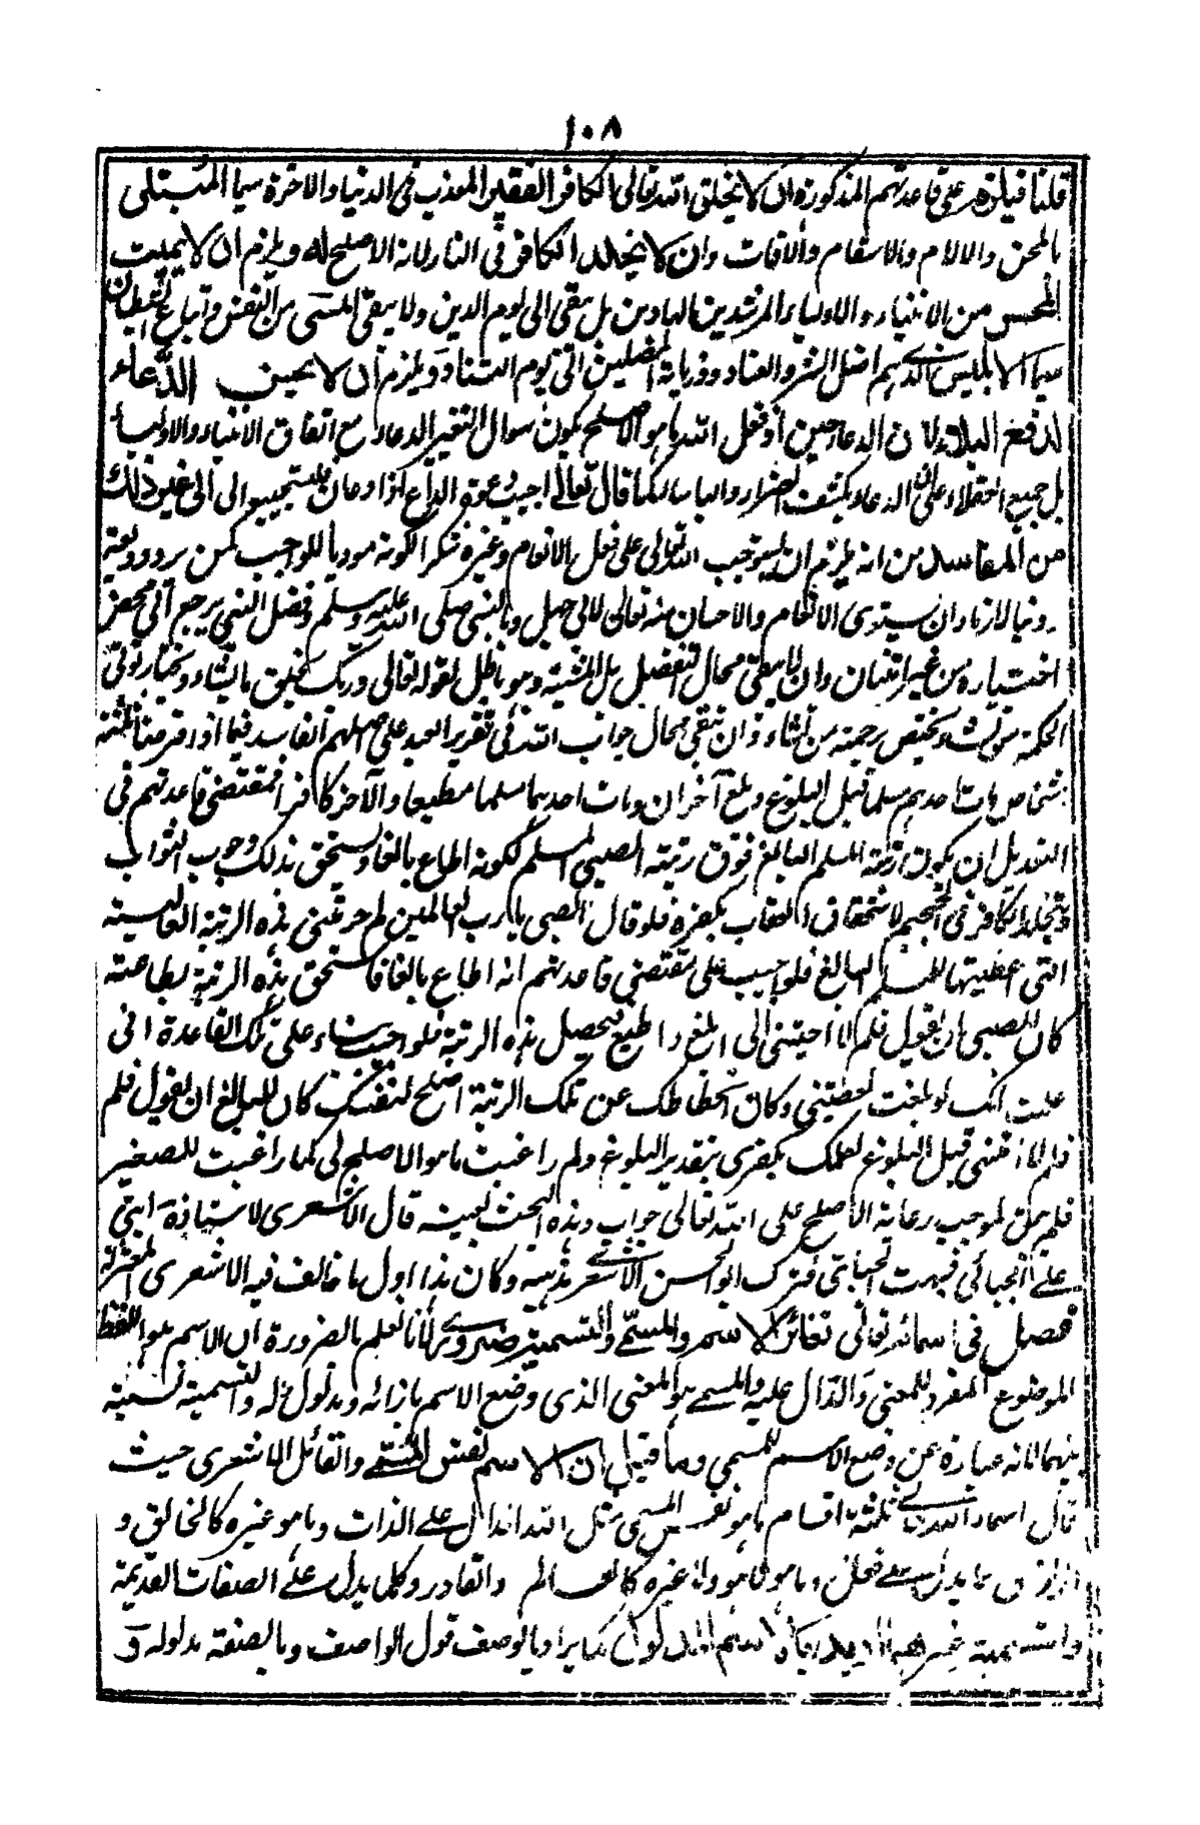 ١٠٨
قلنا فيلزم على قاعدتهم المذكورة ان لا يخلق الله تعالى الكافر الفقير المعذب فى الدنيا والاخرة سيما المبتلى
بالمحن والالام والاسقام والافات وان لا يخلد الكافر فى النار لانه الاصلح له ويلزم ان لا يميت
المحسن من الانبياء والاولياء المرشدين الهادين بل يبقى الى يوم الدين ولا يبقى المسئ من النفس واتباع الشيطان
سيما الابليس الذى هم اصل الشر والعناد وذرياته المضلين الى يوم التناد ويلزم ان لا يحسن الدعاء
لدفع البلاء لان الدعاء حين اذ فعل الله ما هو الاصلح يكون سوال التغيير الدعاء مع اتفاق الانبياء والاولياء
بل جميع العقلاء على ان الدعاء يكشف الضراء والباساء كما قال تعالى اجيب دعوة الداع اذا دعان فليستجيبوا لى الى غير ذلك
من المفاسد من انه يلزم ان يستوجب الله تعالى على فعل الانعام وغيره شكرا لكونه موديا للواجب كمن يرد وديعة
ودينا لازما وان يستوى الانعام والاحسان منه تعالى لابى جهل وبالنبى صلى الله عليه وسلم وفضل النبى يرجع الى محض
اختياره من غير امتنان وان لا يبقى مجال التفضل بل المشية وهو باطل لقوله تعالى وربك يخلق ما يشاء ويختار يوتى
الحكمة من يشاء ويختص برحمته من يشاء وان تبقى مجال جواب الله فى تقرير العبد على اصلهم الفاسد فيما اذا فرضنا ثلثة
اشخاص مات احدهم مسلما قبل البلوغ وبلغ آخران ومات احدهما مسلما مطيعا والآخر كافرا فمقتضى قاعدتهم فى
التعديل ان يكون رتبة المسلم البالغ فوق رتبة الصبى المسلم لكونه اطاع بالغا ويستحق بذلك وجوب الثواب
وتخليد الكافر فى الجحيم لاستحقاق العقاب بكفره فلو قال الصبى يا رب العالمين لم حرمتنى هذه الرتبة العالية
التى اعطيتها للمسلم البالغ فلو اجيب على مقتضى قاعدتهم انه اطاع بالغا فاستحق هذه الرتبة بطاعته
كان للصبى ان يقول فلم لا احيتنى الى ان ابلغ واطيع فيحصل هذه الرتبة فلو اجيب بناء على تلك القاعدة انى
علمت انك لو بلغت لعصيتنى وكان انحطاطك عن تلك الرتبة اصلح لنفسك كان للبالغ ان يقول فلم
فلم لا امتنى قبل البلوغ لعلمك بكفرى بتقدير البلوغ ولم راغبت ما هو الاصلح لى كما راغبت للصغير
فلم يمكن لموجب رعاية الاصلح على الله تعالى جواب وهذه البحث بعينه قال الاشعرى لاستاذه ابى
على الجبائى فبهت الجبائى فترك ابو الحسن الاشعرى مذهبه وكان هذا اول ما خالف فيه الاشعرى المعتزلة
فصل فى اسمائه تعالى تغائر الاسم والمسمى والتسمية ضرورى لانا نعلم بالضرورة ان الاسم هو اللفظ
الموضوع المفرد للمعنى والدال عليه والمسمى هو المعنى الذى وضع الاسم بازائه ومدلول له والتسمية نسبة
بينهما لانه عبارة عن وضع الاسم للمسمى وما قيل ان الاسم نفس المسمى والقائل الاشعرى حيث
قال اسماء الله تعالى ثلثة اقسام ما هو نفس المسمى مثل الله الدال على الذات وما هو غيره كالخالق و
الرازق مما يدل على فعل وما هو لا هو ولا غيره كالعالم والقادر وكلما يدل على الصفات القديمة
والتسمية غير اسم المدلول وبالوصف قول الواصف وبالصفة مدلوله و